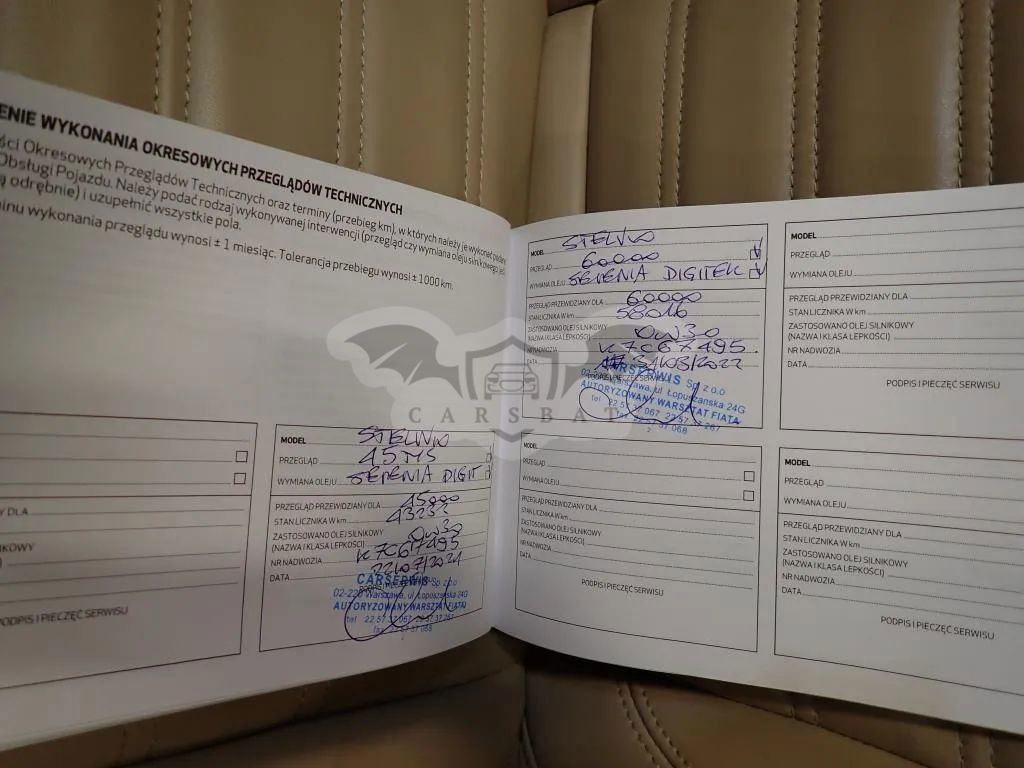 ENIE WYKONANIA OKRESOWYCH PRZEGLĄDÓW TECHNICZNYCH
ści Okresowych Przeglądów Technicznych oraz terminy (przebieg km), w których należy je wykonać podane
Obsługi Pojazdu. Należy podać rodzaj wykonywanej interwencji (przegląd czy wymiana oleju silnikowego jeśl
ą odrębnie) i uzupełnić wszystkie pola.
minu wykonania przeglądu wynosi ± 1 miesiąc. Tolerancja przebiegu wynosi ± 1000 km.
Y DLA
NIKOWY
PODPIS I PIECZĘĆ SERWISU
MODEL STELVIO
PRZEGLĄD 45TYS
WYMIANA OLEJU SELENIA DIGIT
PRZEGLĄD PRZEWIDZIANY DLA 45000
STAN LICZNIKA W km 43232
ZASTOSOWANO OLEJ SILNIKOWY
(NAZWA I KLASA LEPKOŚCI) 0W30
NR NADWOZIA K7C67495
DATA 22/07/2021
CARSERWIS Sp. z o.o
02-223 Warszawa, ul. Łopuszańska 24G
AUTORYZOWANY WARSZTAT FIATA
tel 22 57 37 067, 22 57 37 267
fax 22 57 37 068
MODEL STELVIO
PRZEGLĄD 60000
WYMIANA OLEJU SELENIA DIGITEK
PRZEGLĄD PRZEWIDZIANY DLA 60000
STAN LICZNIKA W km 58016
ZASTOSOWANO OLEJ SILNIKOWY
(NAZWA I KLASA LEPKOŚCI) 0W30
NR NADWOZIA K7C67495
DATA 31/05/2022
CARSERWIS Sp. z o.o
ul. Łopuszańska 24G
AUTORYZOWANY WARSZTAT FIATA
tel 22 57 37 067, 22 57 37 267
22 57 37 068
CARSBAT
MODEL
PRZEGLĄD
WYMIANA OLEJU
PRZEGLĄD PRZEWIDZIANY DLA
STAN LICZNIKA W km
ZASTOSOWANO OLEJ SILNIKOWY
(NAZWA I KLASA LEPKOŚCI)
NR NADWOZIA
DATA
PODPIS I PIECZĘĆ SERWISU
MODEL
PRZEGLĄD
WYMIANA OLEJU
PRZEGLĄD PRZEWIDZIANY DLA
STAN LICZNIKA W km
ZASTOSOWANO OLEJ SILNIKOWY
(NAZWA I KLASA LEPKOŚCI)
NR NADWOZIA
DATA
PODPIS I PIECZĘĆ SERWISU
MODEL
PRZEGLĄD
WYMIANA OLEJU
PRZEGLĄD PRZEWIDZIANY DLA
STAN LICZNIKA W km
ZASTOSOWANO OLEJ SILNIKOWY
(NAZWA I KLASA LEPKOŚCI)
NR NADWOZIA
DATA
PODPIS I PIECZĘĆ SERWISU